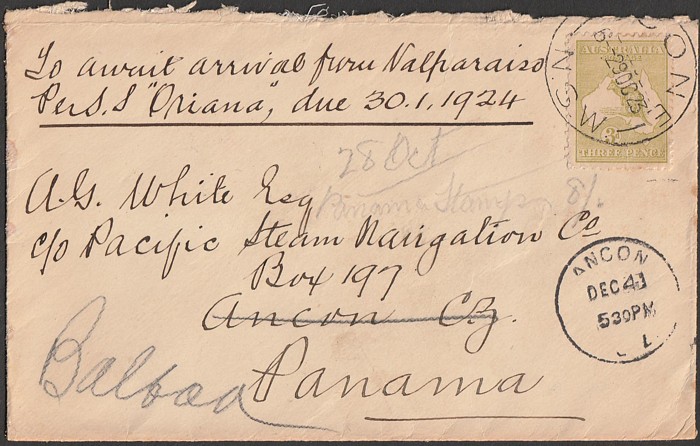 To await arrival from Valparaiso
Per S.S "Oriana", due 30.1.1924
AUSTRALIA
3D
THREE PENCE
N.S.W
28 Oct
Panama Stamps 8/.
A.G. White Esq
c/o Pacific Steam Navigation Co
Box 197
Ancon C.Z.
Panama
Balboa
ANCON
DEC 4
530 PM